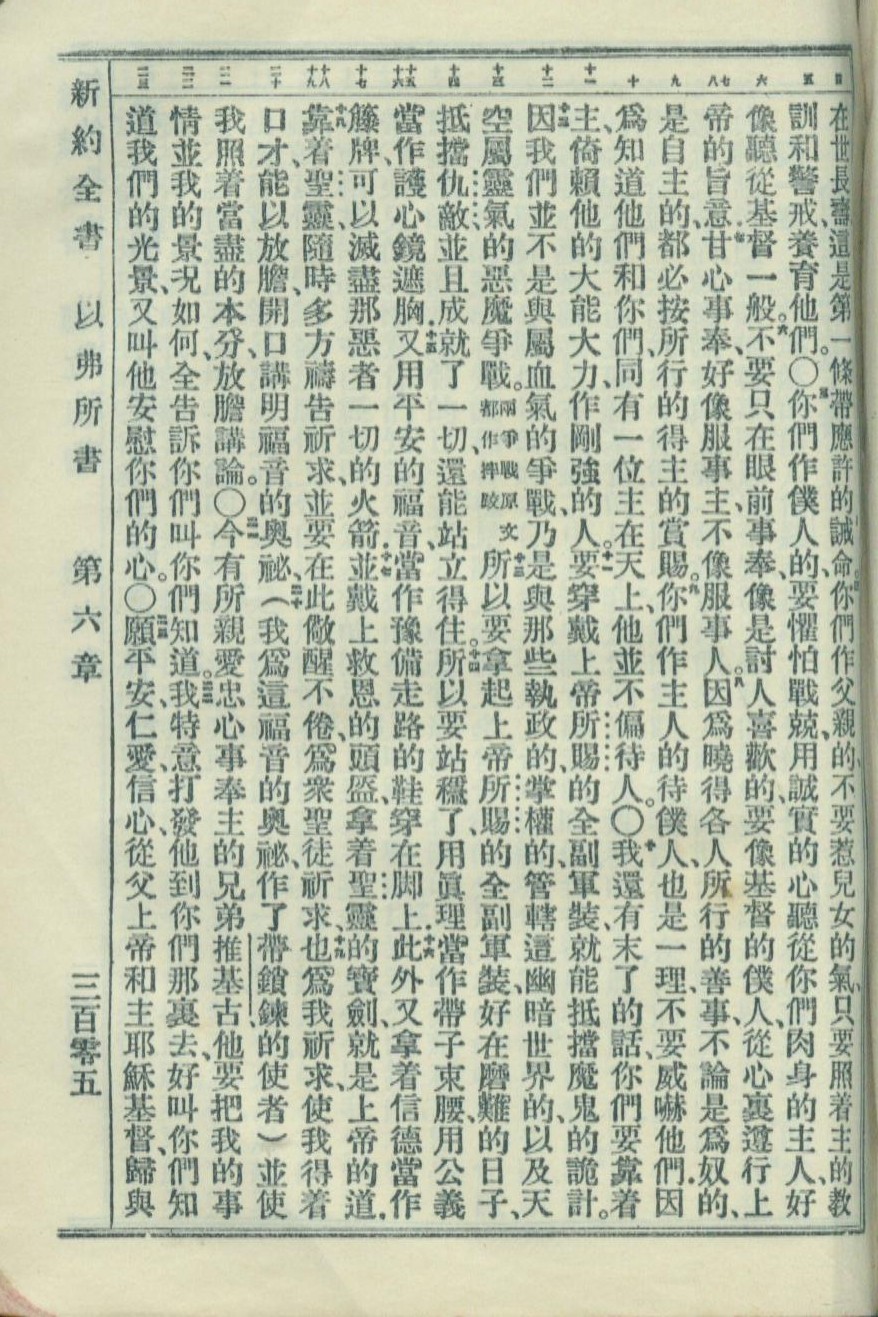 四 五 六 七八 九 十 十一 十二 十三 十四 十五十六 十七 十八十九 二十 二一 二二 二三
在世長壽、這是第一條帶應許的誡命。四你們作父親的、不要惹兒女的氣、只要照着主的教
訓和警戒養育他們。〇五你們作僕人的、要懼怕戰兢、用誠實的心聽從你們肉身的主人、好
像聽從基督一般。六不要只在眼前事奉、像是討人喜歡的、要像基督的僕人、從心裏遵行上
帝的旨意、七甘心事奉、好像服事主、不像服事人。八因爲曉得各人所行的善事、不論是爲奴的、
是自主的、都必按所行的得主的賞賜。九你們作主人的待僕人、也是一理、不要威嚇他們、因
爲知道他們和你們、同有一位主在天上、他並不偏待人。〇十我還有末了的話、你們要靠着
主、倚賴他的大能大力、作剛強的人。十一要穿戴上帝所賜的全副軍裝、就能抵擋魔鬼的詭計。
十二因我們並不是與屬血氣的爭戰、乃是與那些執政的、掌權的、管轄這幽暗世界的、以及天
空屬靈氣的惡魔爭戰。兩爭戰原文都作摔跤十三所以要拿起上帝所賜的全副軍裝、好在磨難的日子、
抵擋仇敵、並且成就了一切、還能站立得住。十四所以要站穩了、用眞理當作帶子束腰、用公義
當作護心鏡遮胸、十五又用平安的福音、當作豫備走路的鞋穿在脚上、十六此外又拿着信德當作
籐牌、可以滅盡那惡者一切的火箭、十七並戴上救恩的頭盔、拿着聖靈的寶劍、就是上帝的道、
十八靠着聖靈、隨時多方禱告祈求、並要在此儆醒不倦、爲衆聖徒祈求、十九也爲我祈求、使我得着
口才、能以放膽、開口講明福音的奧祕、二十（我爲這福音的奧祕、作了帶鎖鍊的使者）並使
我照着當盡的本分、放膽講論。〇二一今有所親愛忠心事奉主的兄弟推基古、他要把我的事
情、並我的景况如何、全告訴你們、叫你們知道。二二我特意打發他到你們那裏去、好叫你們知
道我們的光景、又叫他安慰你們的心。〇二三願平安、仁愛、信心、從父上帝和主耶穌基督、歸與
新約全書 以弗所書 第六章 三百零五